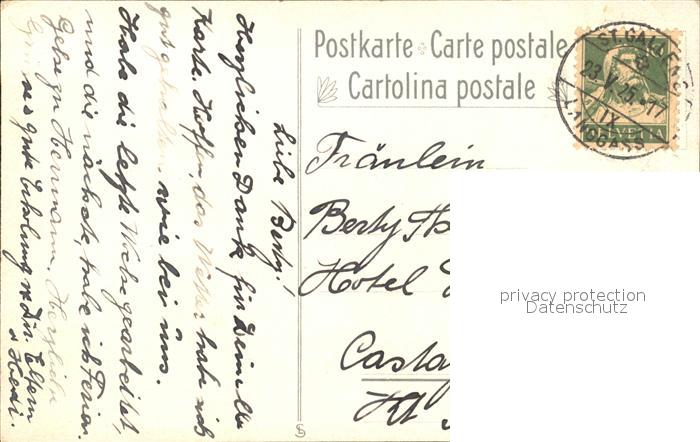 Postkarte Carte postale
Cartolina postale
ST. GALLEN
23.V.25.-17
IX
LANGGASS
HELVETIA
Liebe Berty!
Herzlichen Dank für Deine lb.
Karte. Hoffen, das Wetter habe sich
gut gehalten, wie bei uns.
Habe die letzte Woche gearbeitet,
und die nächste habe ich Ferien.
Gehe zu Hermann. Herzliche
Grüsse gute Erholung Dir. Eltern
Hedi.
Fräulein
Berty
Hotel
Casta
Kt
privacy protection
Datenschutz